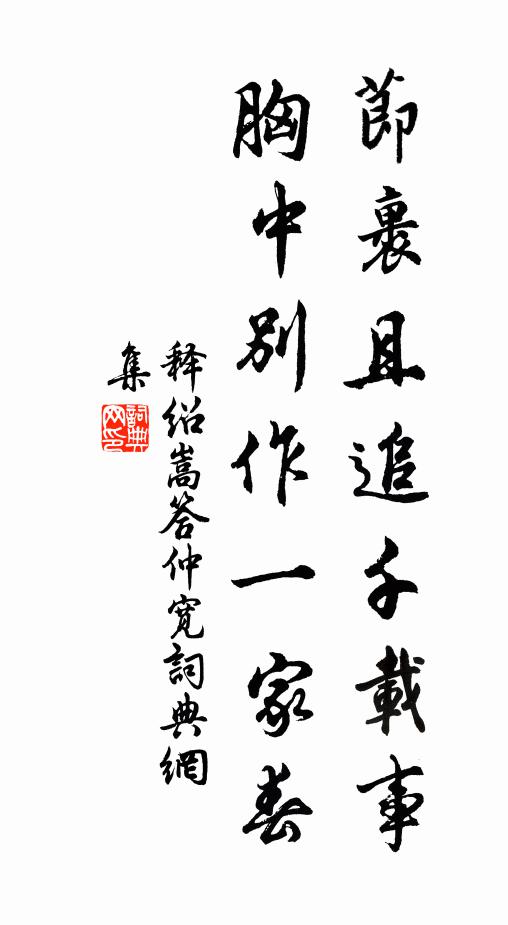 節裏且追千載事
胸中別作一家春
释绍嵩答仲寬詞典網
集
詞典网印